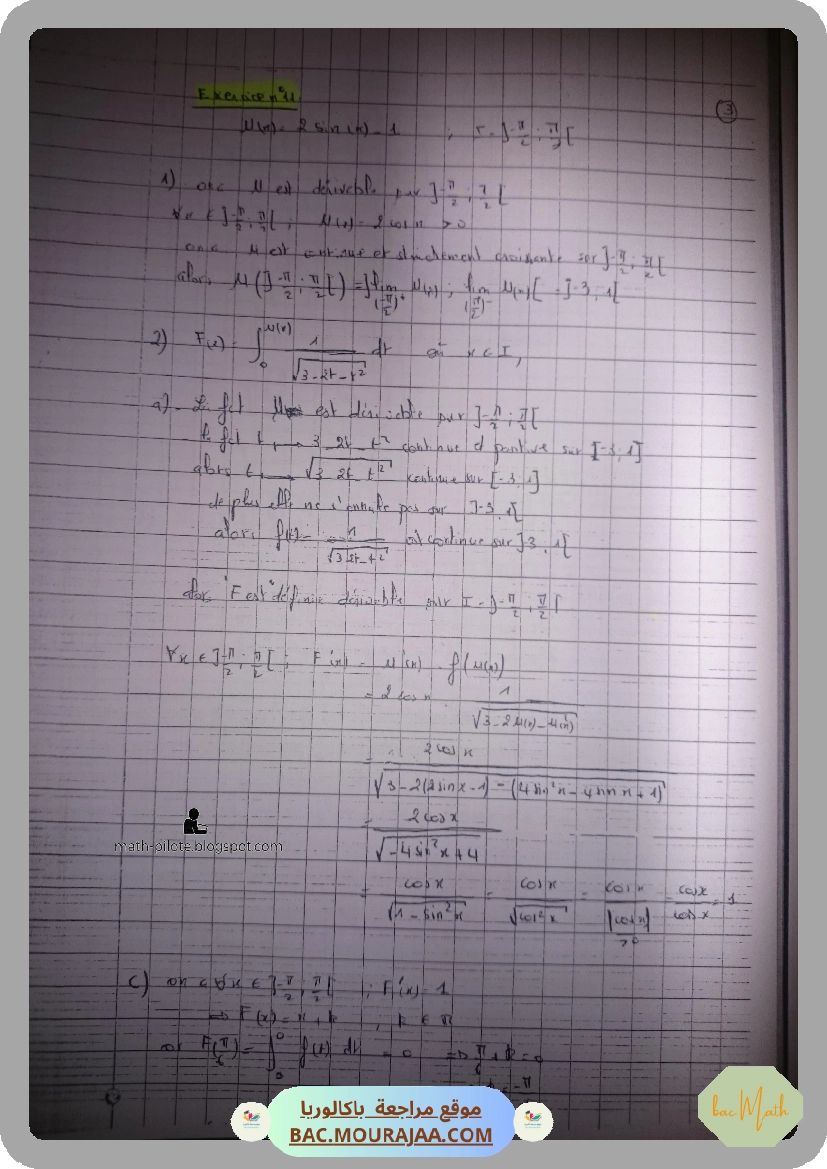 Exercice n°11
③
u(x) = 2 sin(x) - 1 ; I = ]-π/2 ; π/2[
1) on a u est dérivable sur ]-π/2 ; π/2[
∀x ∈ ]-π/2 ; π/2[ ; u'(x) = 2 cos x > 0
on a u est continue et strictement croissante sur ]-π/2 ; π/2[
alors u(]-π/2 ; π/2[) = ]lim (-π/2)⁺ u(x) ; lim (π/2)⁻ u(x)[ = ]-3 ; 1[
2) F(x) = ∫₀^u(x) 1/√(3-2t-t²) dt où x ∈ I,
a) - La fct u est dérivable sur ]-π/2 ; π/2[
la fct t ⟼ 3-2t-t² continue et positive sur [-3, 1]
alors t ⟼ √(3-2t-t²) continue sur [-3, 1]
de plus elle ne s'annule pas sur ]-3, 1[
alors f(t) = 1/√(3-2t-t²) est continue sur ]-3, 1[
alors F est définie dérivable sur I = ]-π/2 ; π/2[
∀x ∈ ]-π/2 ; π/2[ ; F'(x) = u'(x) · f(u(x))
= 2 cos x · 1/√(3-2u(x)-u²(x))
= 2 cos x/√(3-2(2 sin x-1) - (4 sin² x - 4 sin x + 1))
= 2 cos x/√(-4 sin² x + 4)
math-pilote.blogspot.com
= cos x/√(1 - sin² x) = cos x/√(cos² x) = cos x/|cos x| >0 = cos x/cos x = 1
c) on a ∀x ∈ ]-π/2 ; π/2[ ; F'(x) = 1
⇒ F(x) = x + k , k ∈ ℝ
or F(π/6) = ∫₀⁰ f(t) dt = 0 ⇒ π/6 + k = 0
موقع مراجعة باكالوريا
BAC.MOURAJAA.COM
bac Math